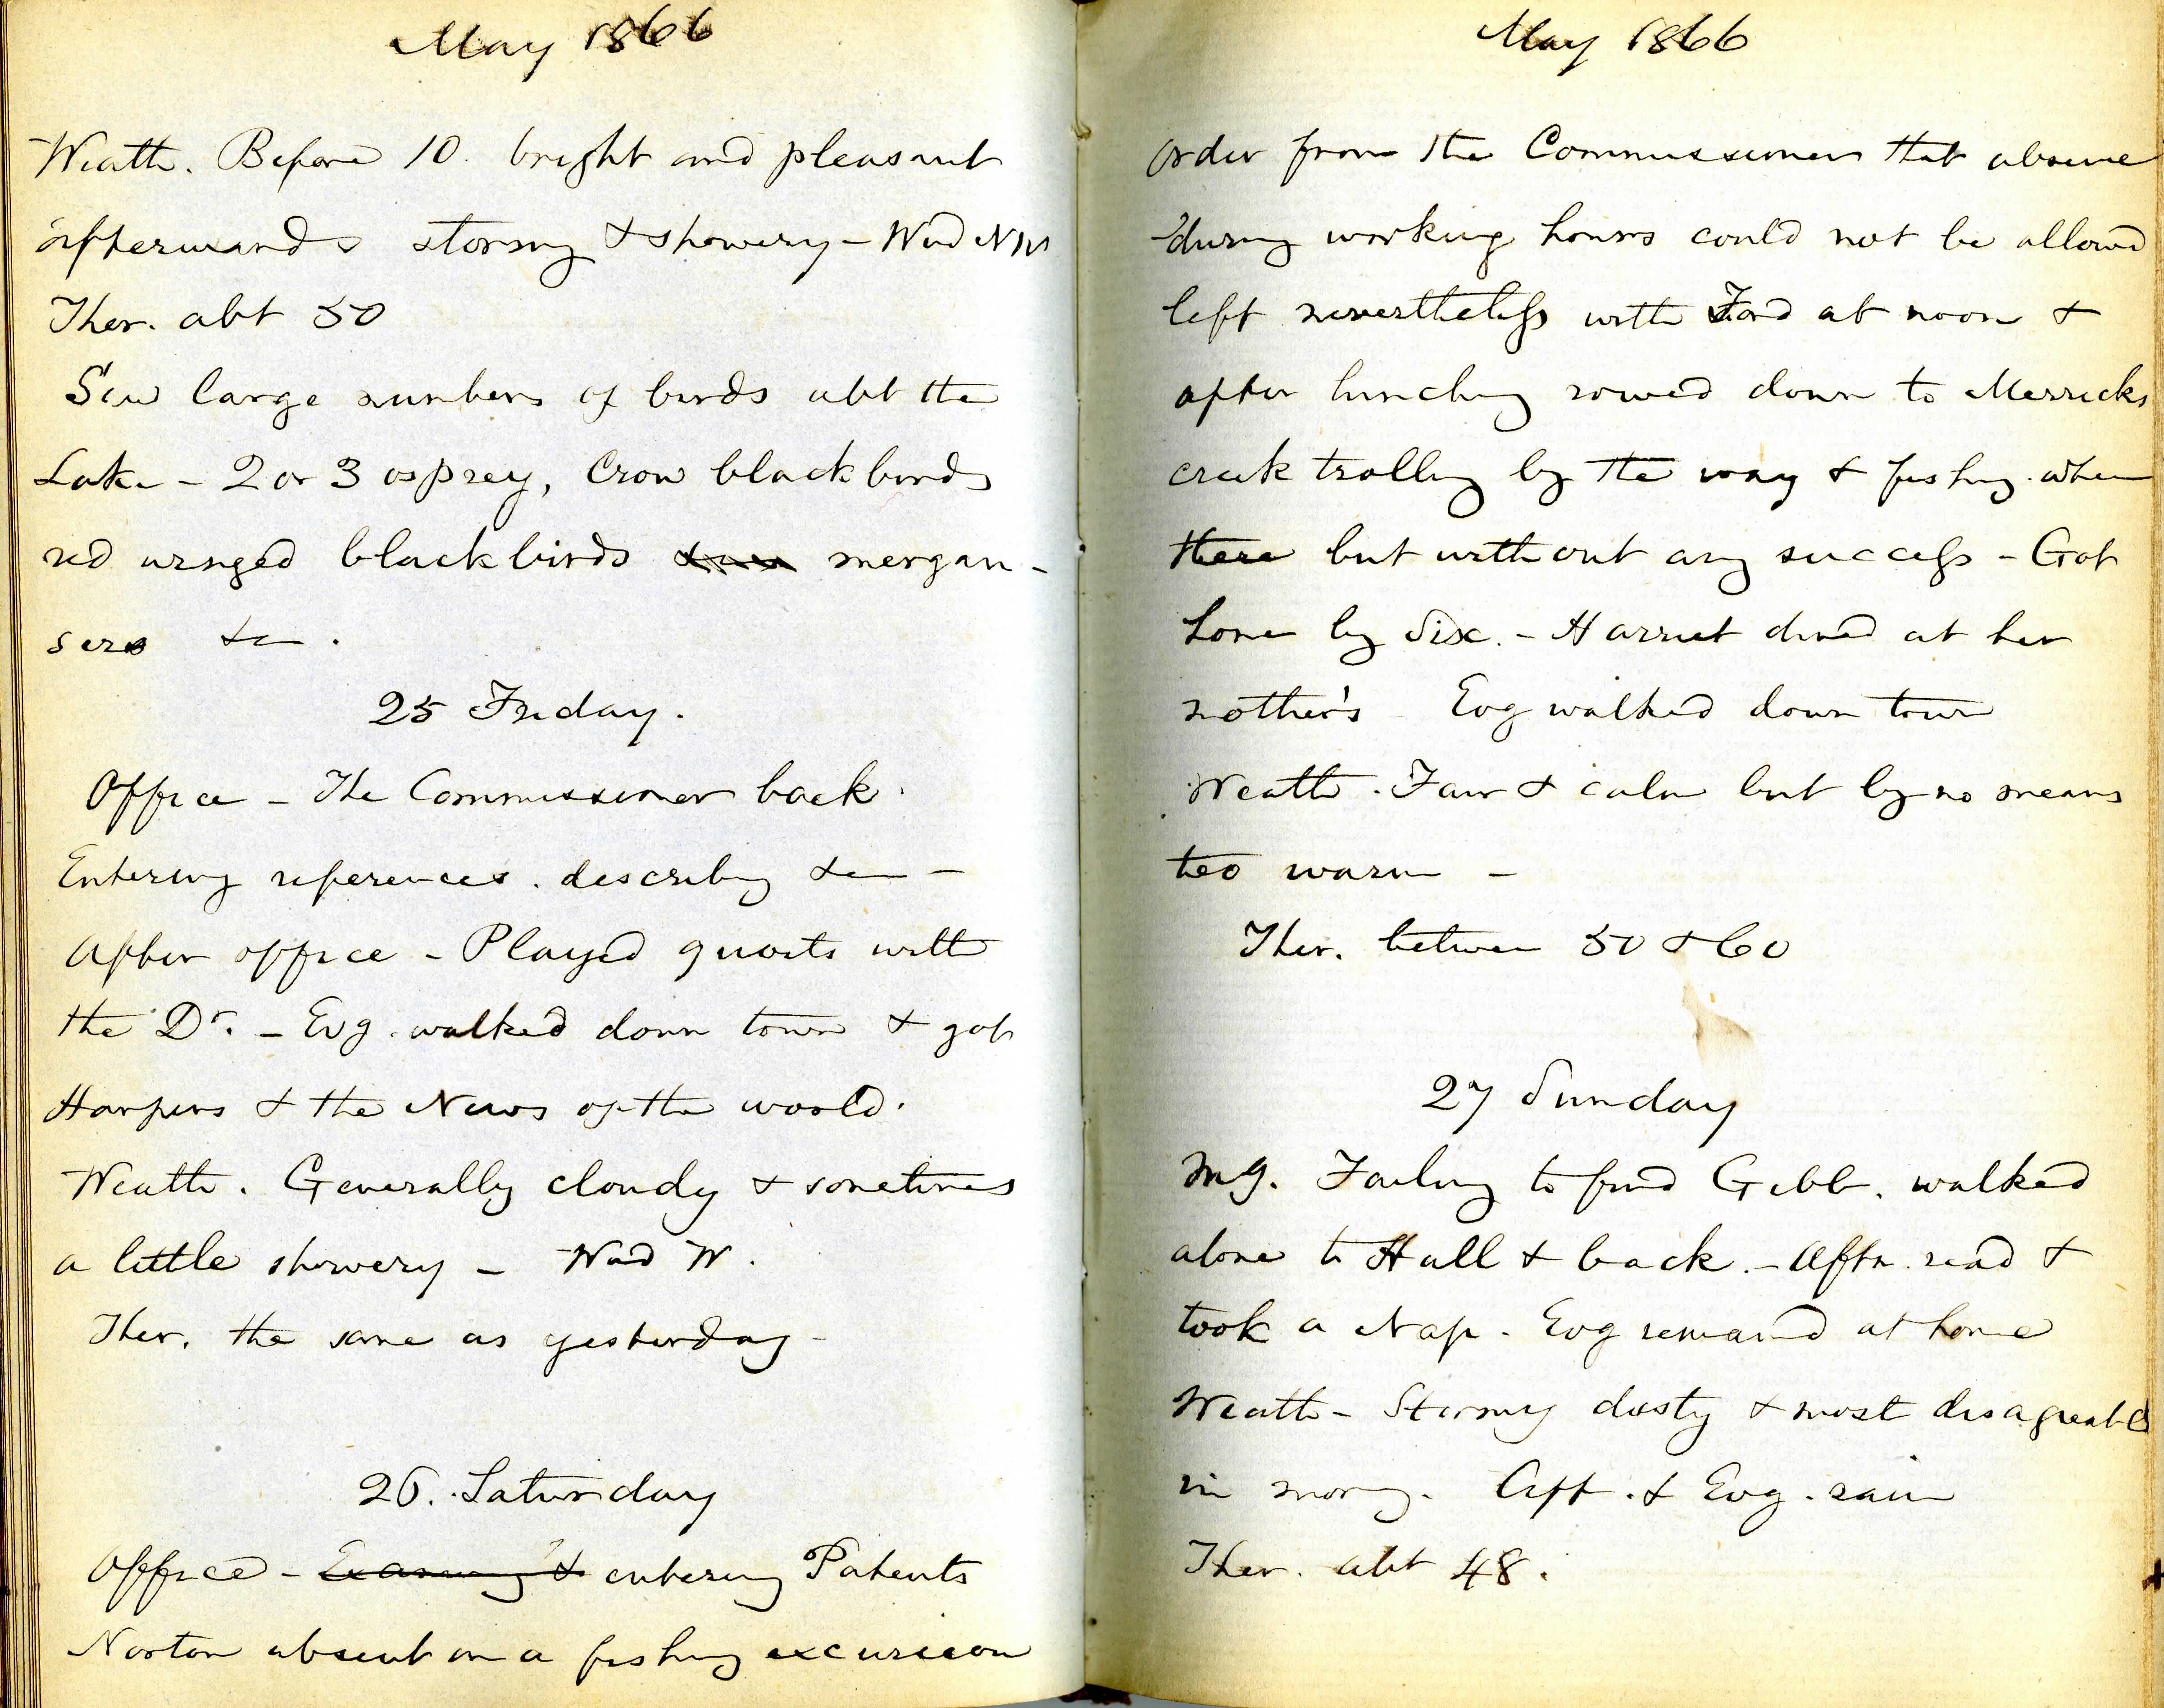 May 1866
Weath. Before 10. bright and pleasant
afterwards stormy & showery – Wind NW
Ther. abt 50
Saw large numbers of birds abt the
Lake – 2 or 3 osprey, Crow blackbirds
red winged blackbirds mergan-
sers &c.
25 Friday.
Office – The Commissioner back.
Entering references. describing &c –
After office – Played quoits with
the Dr. – Evg. walked down town & got
Harpers & the News of the world.
Weath. Generally cloudy & sometimes
a little showery – Wind W.
Ther. the same as yesterday –
26. Saturday
Office – Examing & entering Patents
Norton absent on a fishing excursion
May 1866
Order from the Commissioner that absence
during working hours could not be allowed
left nevertheless with Ford at noon &
after lunching rowed down to Merricks
creek trolling by the way & fishing when
there but without any success – Got
home by Six. – Harriet dined at her
mother's Evg walked down town
Weath. Fair & calm but by no means
too warm –
Ther. between 50 & 60
27 Sunday
Mg. Failing to find Gibb. walked
alone to Hall & back. – Aftn. read &
took a Nap. Evg remained at home
Weath – Stormy dusty & most disagreable
in morng. Aft. & Evg. rain
Ther. abt 48.